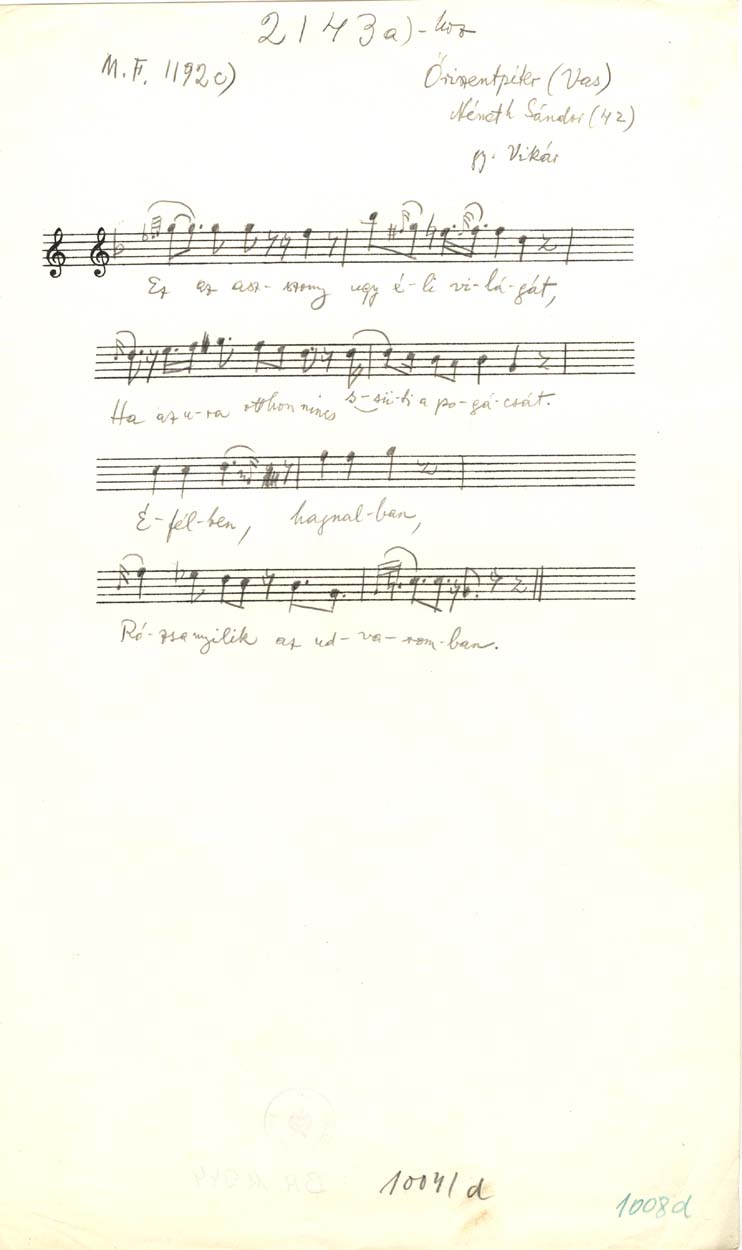 2143a)-hoz
M.F. 1192c)
Őriszentpéter (Vas)
Németh Sándor (42)
gy. Vikár
Ez az asz-szony ugy é-li vi-lá-gát,
Ha az u-ra otthon nincs s-sü-ti a po-gá-csát.
É-fél-ben, hagnal-ban,
Ró-zsa nyilik az ud-va-rom-ban.
1004/d
1008d